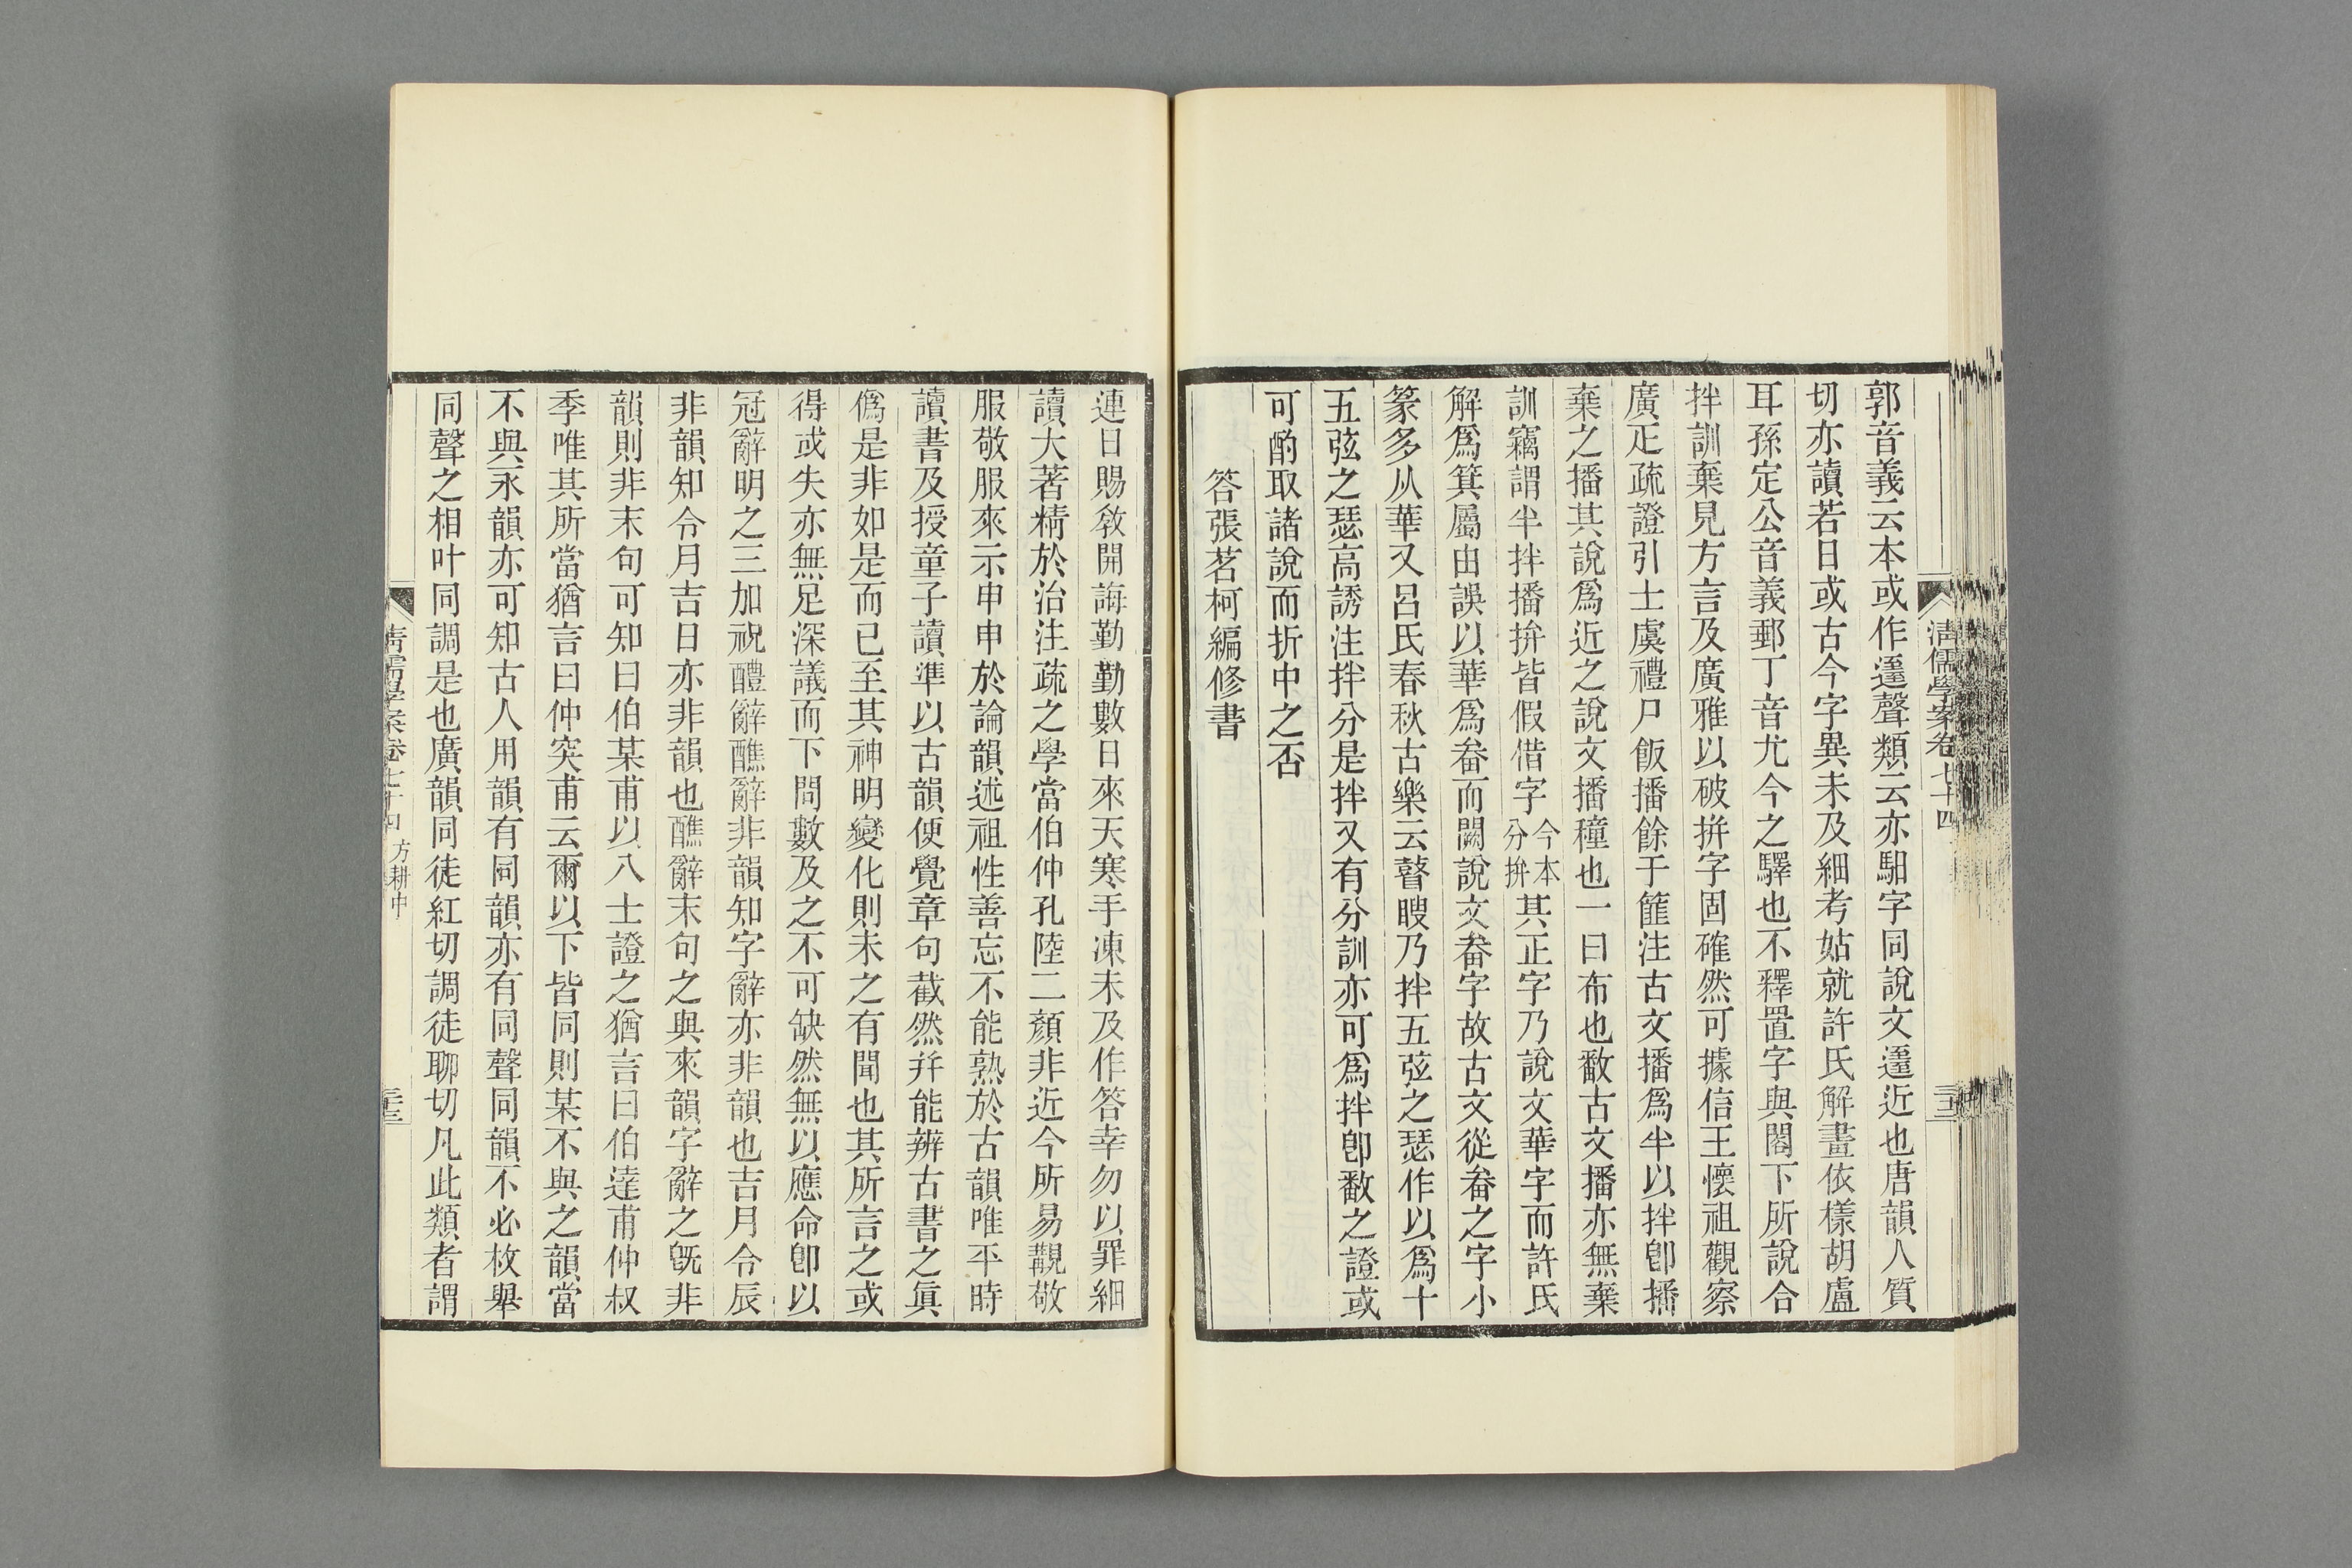 清儒學案卷七十四
郭音義云本或作遳聲類云亦馹字同說文遳近也唐韻人質
切亦讀若日或古今字異未及細考姑就許氏解畫依樣胡盧
耳孫定公音義郵丁音尤今之驛也不釋置字與閣下所說合
拌訓棄見方言及廣雅以破拚字固確然可據信王懷祖觀察
廣疋疏證引士虞禮尸飯播餘于篚注古文播爲半以拌卽播
棄之播其說爲近之說文播穜也一曰布也敽古文播亦無棄
訓竊謂半拌播拚皆假借字今本
分拚其正字乃說文華字而許氏
解爲箕屬由誤以華爲畚而闕說文畚字故古文從畚之字小
篆多从華又呂氏春秋古樂云瞽瞍乃拌五弦之瑟作以爲十
五弦之瑟高誘注拌分是拌又有分訓亦可爲拌卽敽之證或
可酌取諸說而折中之否
答張茗柯編修書
連日賜敘開誨勤勤數日來天寒手凍未及作答幸勿以罪細
讀大著精於治注疏之學當伯仲孔陸二顏非近今所易覯敬
服敬服來示申申於論韻述祖性善忘不能熟於古韻唯平時
讀書及授童子讀準以古韻便覺章句截然幷能辨古書之眞
僞是非如是而已至其神明變化則未之有聞也其所言之或
得或失亦無足深議而下問數及之不可缺然無以應命卽以
冠辭明之三加祝醴辭醮辭非韻知字辭亦非韻也吉月令辰
非韻知令月吉日亦非韻也醮辭末句之與來韻字辭之旣非
韻則非末句可知曰伯某甫以八士證之猶言曰伯達甫仲叔
季唯其所當猶言曰仲突甫云爾以下皆同則某不與之韻當
不與永韻亦可知古人用韻有同韻亦有同聲同韻不必枚舉
同聲之相叶同調是也廣韻同徒紅切調徒聊切凡此類者謂
清儒學案卷七十四 方耕中